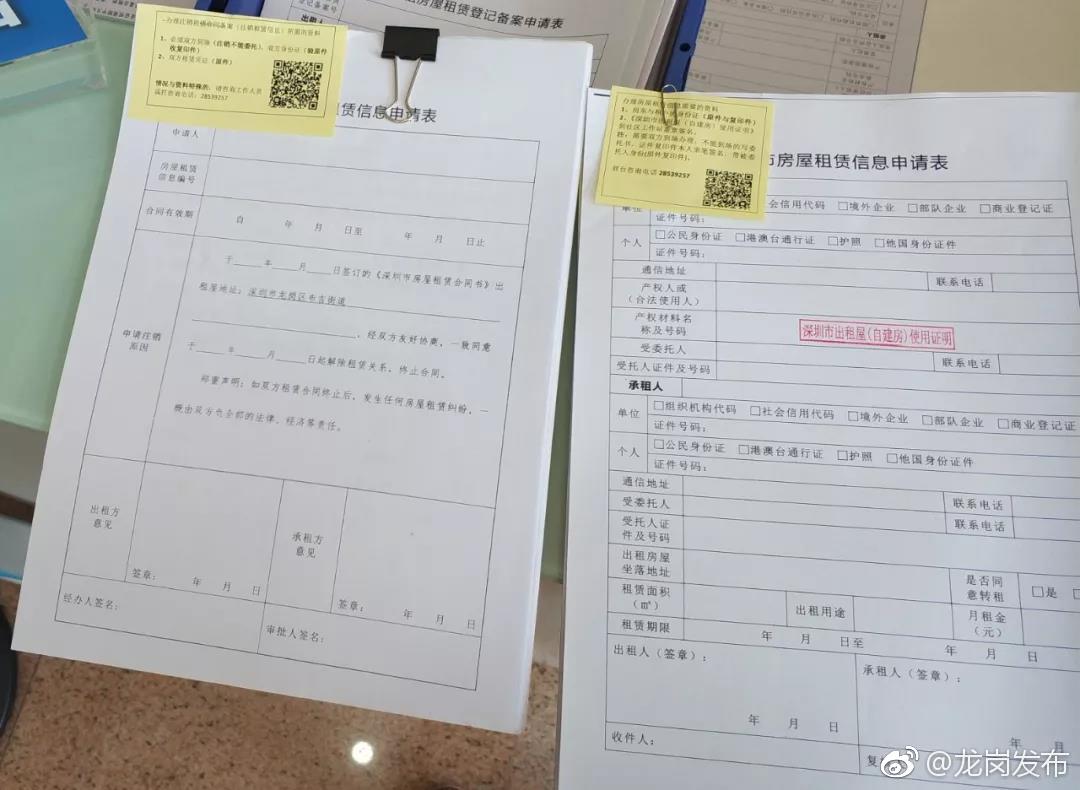 房屋租赁登记备案申请表
登记备案号
出租人
1、必须双方到场（注销不能委托）、双方身份证（验原件
收复印件）
2、双方租赁凭证（原件）
情况与资料特殊的，请咨询工作人员
或打咨询电话：28539257
赁信息申请表
申请人
房屋租赁
信息编号
合同有效期
自 年 月 日至 年 月 日止
申请注销
原因
于 年 月 日签订的《深圳市房屋租赁合同书》出
租屋地址：深圳市龙岗区布吉街道
，经双方友好协商，一致同意
于 年 月 日起解除租赁关系，终止合同。
郑重声明：如双方租赁合同终止后，发生任何房屋租赁纠纷，一
概由双方负全部的法律、经济等责任。
出租方
意见
签章： 年 月 日
承租方
意见
签章： 年 月 日
经办人签名：
审批人签名：
1、房东与租户的身份证（原件与复印件）
2、《深圳市出租屋（自建房）使用证明》
到社区工作站盖章签名。
需要双方到场办理，不能到场的写委
托书，证件复印件本人亲笔签名，带被委
托人身份(原件复印件)。
前台咨询电话 28539257
市房屋租赁信息申请表
单位
会信用代码 □境外企业 □部队企业 □商业登记证
证件号码：
个人
□公民身份证 □港澳台通行证 □护照 □他国身份证件
证件号码：
通信地址
联系电话
产权人或
（合法使用人）
产权材料名
称及号码
深圳市出租屋(自建房)使用证明
受委托人
联系电话
受托人证件及号码
承租人
单位
□组织机构代码 □社会信用代码 □境外企业 □部队企业 □商业登记证
证件号码：
个人
□公民身份证 □港澳台通行证 □护照 □他国身份证件
证件号码：
通信地址
联系电话
受委托人
联系电话
受托人证
件及号码
出租房屋
坐落地址
是否同
意转租
□是 □
租赁面积
（㎡）
出租用途
月租金
（元）
租赁期限
年 月 日至 年 月 日
出租人（签章）：
年 月 日
承租人（签章）：
年 月
收件人：
复
@龙岗发布